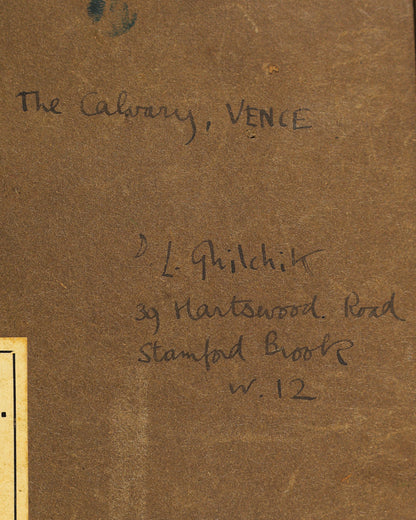 The Calvary, VENCE
D L. Ghilchik
39 Hartswood Road
Stamford Brook
W. 12